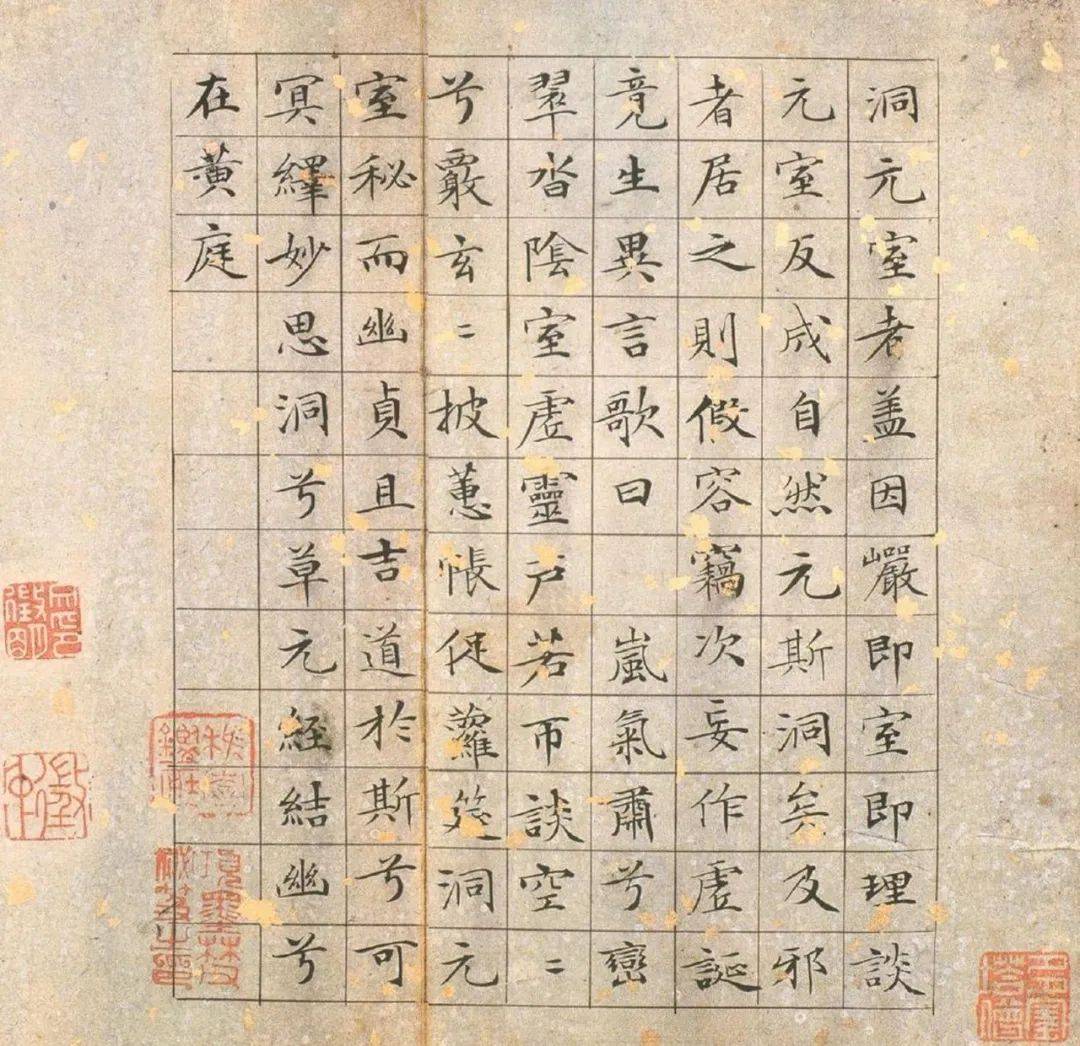 洞元室者盖因巖即室即理談
元室反成自然元斯洞矣及邪
者居之則假容竊次妄作虛誕
竟生異言歌曰 嵐氣肅兮巒
翠沓陰室虛靈戶若帀談空〻
兮覈玄〻披蕙帳促蘿筵洞元
室秘而幽貞且吉道於斯兮可
冥繹妙思洞兮草元経結幽兮
在黃庭
項墨林父秘笈之印